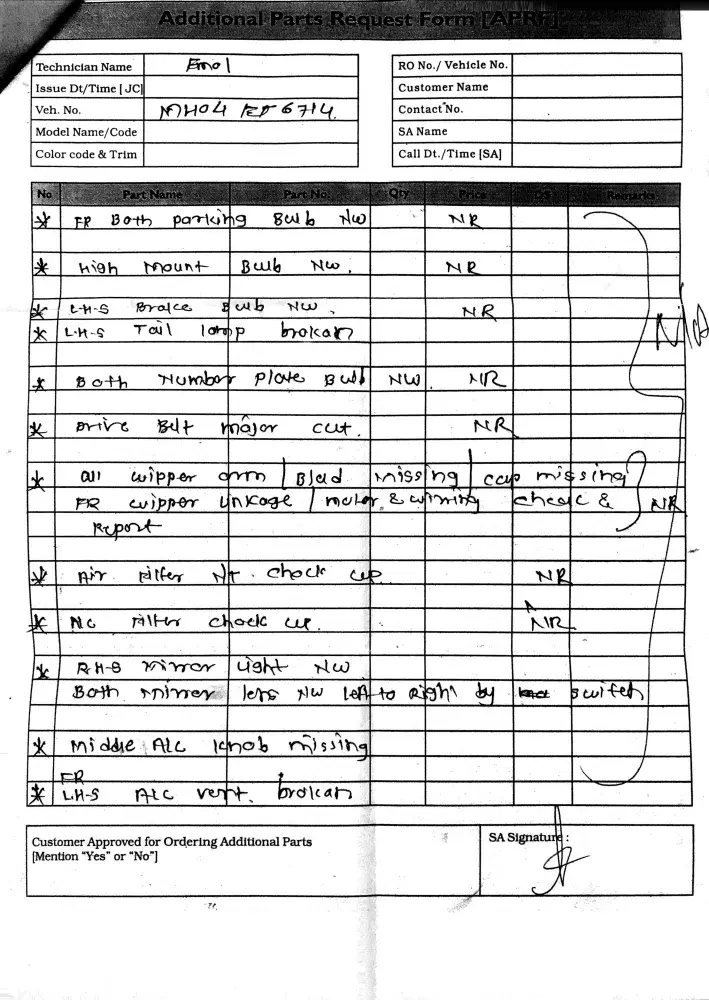 Additional Parts Request Form [APRF]
Technician Name
RO No./ Vehicle No.
Issue Dt/Time [ JC]
Customer Name
Veh. No. MH04 ET 6714.
Contact No.
Model Name/Code
SA Name
Color code & Trim
Call Dt./Time [SA]
No Part Name Part No. Qty Price Remarks
* FR Both parking Bulb Nw NR
* High mount Bulb Nw. NR
* L-H-S Brake Bulb Nw. NR
* L-H-S Tail lamp brokan
* Both Number Plate Bulb NW. NR
* Drive Belt major cut. NR
* all wipper arm / Blad missing / cap missing
FR wipper linkage / motor & wirring cheack & NR
Report
* Air Filter Nt. chack up NR
* Ac Filter chack up. NR
* R-H-S mirror light Nw
Both mirror lens Nw left to Right by switch
* Middle A/c knob missing
FR
* L.H-S A/c vent. brokan
Customer Approved for Ordering Additional Parts
[Mention "Yes" or "No"]
SA Signature :